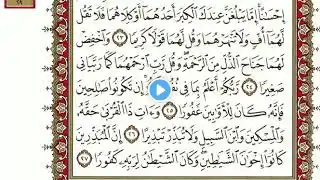 إِحْسَٰنًا إِمَّا يَبْلُغَنَّ عِندَكَ ٱلْكِبَرَ أَحَدُهُمَآ أَوْ كِلَاهُمَا فَلَا تَقُل
لَّهُمَآ أُفٍّ وَلَا تَنْهَرْهُمَا وَقُل لَّهُمَا قَوْلًا كَرِيمًا ٢٣ وَٱخْفِضْ
لَهُمَا جَنَاحَ ٱلذُّلِّ مِنَ ٱلرَّحْمَةِ وَقُل رَّبِّ ٱرْحَمْهُمَا كَمَا رَبَّيَانِى
صَغِيرًا ٢٤ رَّبُّكُمْ أَعْلَمُ بِمَا فِى إِن تَكُونُوا۟ صَٰلِحِينَ
فَإِنَّهُۥ كَانَ لِلْأَوَّٰبِينَ غَفُورًا ٢٥ وَءَاتِ ذَا ٱلْقُرْبَىٰ حَقَّهُۥ
وَٱلْمِسْكِينَ وَٱبْنَ ٱلسَّبِيلِ وَلَا تُبَذِّرْ تَبْذِيرًا ٢٦ إِنَّ ٱلْمُبَذِّرِينَ
كَانُوٓا۟ إِخْوَٰنَ ٱلشَّيَٰطِينِ وَكَانَ ٱلشَّيْطَٰنُ لِرَبِّهِۦ كَفُورًا ٢٧